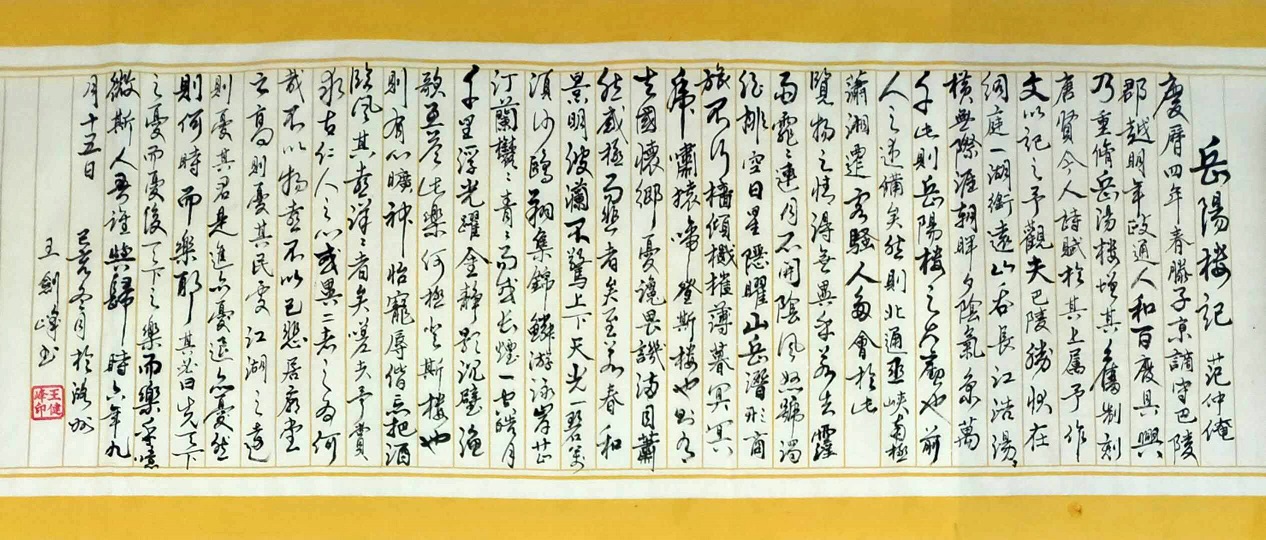 岳陽樓記 范仲俺
慶曆四年春滕子京謫守巴陵
郡越明年政通人和百廢具興
乃重脩岳陽樓增其舊制刻
唐賢今人詩賦於其上属予作
文以記之予觀夫巴陵勝狀在
洞庭一湖銜遠山吞長江浩湯湯
橫無際涯朝暉夕陰氣象萬
千此則岳陽樓之大觀也前
人之述備矣然則北通巫峽南極
瀟湘遷客騷人多會於此
覽物之情得無異乎若夫霪
雨霏霏連月不開陰風怒號濁
浪排空日星隱曜山岳潛形商
旅不行檣傾檝摧薄暮冥冥
虎嘯猿啼登斯樓也則有
去國懷鄉憂讒畏譏滿目蕭
然感極而悲者矣至若春和
景明波瀾不驚上下天光一碧萬
頃沙鷗翔集錦鱗游泳岸芷
汀蘭鬱鬱青青而或長煙一空皓月
千里浮光躍金靜影沉璧漁
歌互答此樂何極登斯樓也
則有心曠神怡寵辱偕忘把酒
臨風其喜洋洋者矣嗟夫予嘗
求古仁人之心或異二者之為何
哉不以物喜不以己悲居廟堂
之高則憂其民處江湖之遠
則憂其君是進亦憂退亦憂然
則何時而樂耶其必曰先天下
之憂而憂後天下之樂而樂乎噫
微斯人吾誰與歸時六年九
月十五日
己亥冬月於洛城
王劍峰书
王健峰印